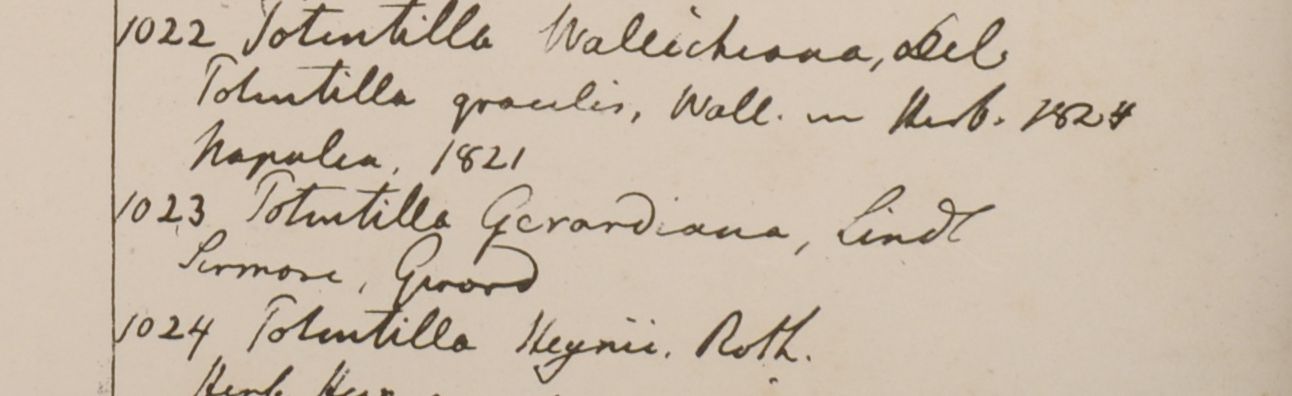 1022 Potentilla Wallichiana, Del
Potentilla gracilis, Wall. in Herb. 1824
Napalea, 1821
1023 Potentilla Gerardiana, Lindl
Sirmore, Gerard
1024 Potentilla Heynii. Roth.
Herb. Heyn